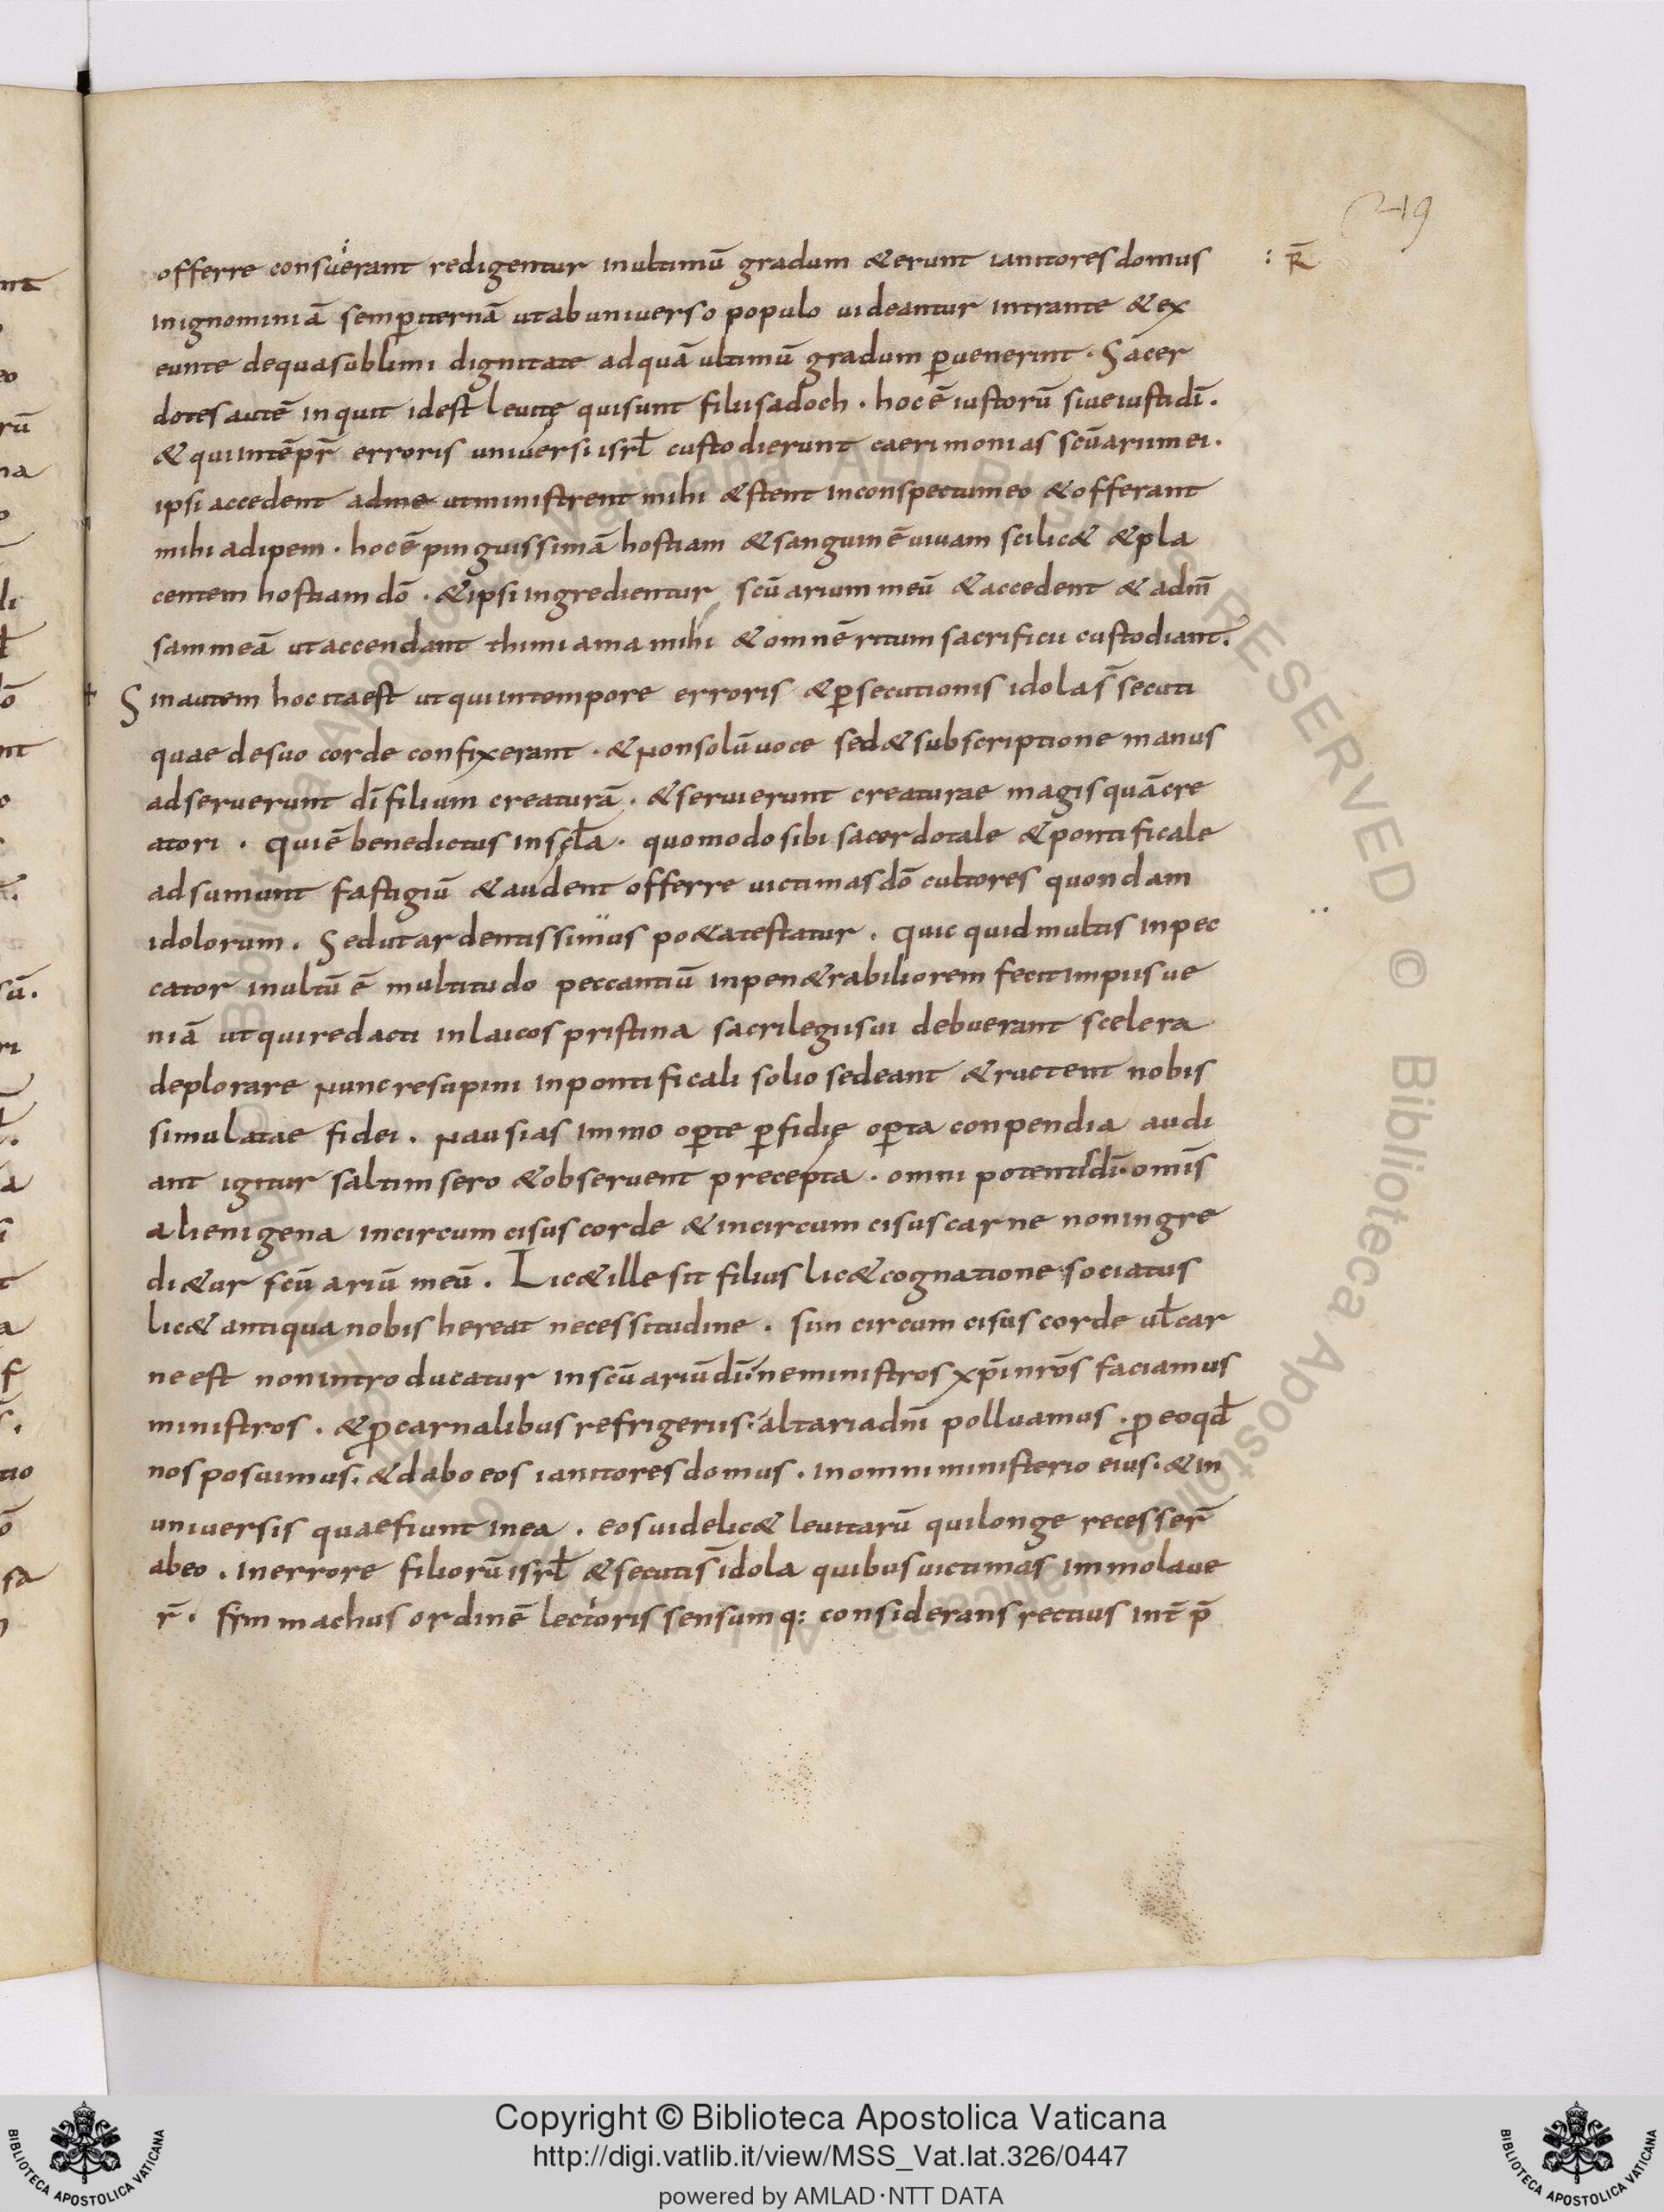 219
offerre consuerant redigentur inultimū gradum &erunt ianitores domus : R̄
inignominiā semp̄iternā utabuniuerso populo uideantur intrante &ex
eunte dequasublimi dignitate adquā ultimū gradum p̄uenerint · Sacer
dotes autē inquit idest leuitę quisunt filiisadoch · hocē iustorū siueiustidī ·
&quiintēpr̄ erroris uniuersiisrł custodierunt caerimonias scūariimei ·
ipsi accedent adme utministrent mihi &stent inconspectumeo &offerant
mihi adipem · hocē pinguissimā hostiam &sanguinē uiuam scilic& &pla
centem hostiam dō · &ipsi ingredientur scūarium meū &accedent & adm̄
sam meā utaccendant thimiama mihi &omnē ritum sacrificii custodiant ·
Sinautem hoc itaest utquiintempore erroris &p̄secutionis idola s̄ secuti
quae desuo corde confixerant · &nonsolū uoce sed&subscriptione manus
adseruerunt dī filium creaturā · &seruierunt creaturae magis quācre
atori · quiē benedictus inscła · quomodo sibi sacerdotale &pontificale
adsumunt fastigiū &audent offerre uictimas dō cultores quondam
idolorum · Sedut ardentissimus po&atestatur · quicquid multis inpec
cator inultū ē multitudo peccantiū inpen&rabiliorem fecit impiis ue
niā utquiredacti inlaicos pristina sacrilegiisui debuerant scelera
deplorare nunc resupini inpontificali solio sedeant &ructent nobis
simulatae fidei · nausias immo op̄te p̄fidię op̄ta conpendia audi
ant igitur saltim sero &obseruent precepta · omnipotentis dī · omīs
alienigena incircumcisus corde &incircumcisus carne noningre
di&ur scūariū meū · Lic& ille sit filius lic&cognatione sociatus
lic& antiqua nobis hereat necessitudine · siin circumcisus corde uł car
ne est nonintroducatur inscūariū dī · neministros xp̄i nr̄os faciamus
ministros · &ꝓcarnalibus refrigeriis · altariadn̄i polluamus · ꝓ eoqđ
nos posuimus · &dabo eos ianitores domus · inomni ministerio eius · &in
uniuersis quaefiunt inea · eos uidelic& leuitarū quilonge recesser̄
abeo · inerrore filiorū isrł &secutis̄ idola quibus uictimas immolaue
r̄ · symmachus ordinē lectoris sensumq: considerans rectius int̄ p̄
Copyright © Biblioteca Apostolica Vaticana
http://digi.vatlib.it/view/MSS_Vat.lat.326/0447
powered by AMLAD·NTT DATA
BIBLIOTECA APOSTOLICA VATICANA
BIBLIOTECA APOSTOLICA VATICANA